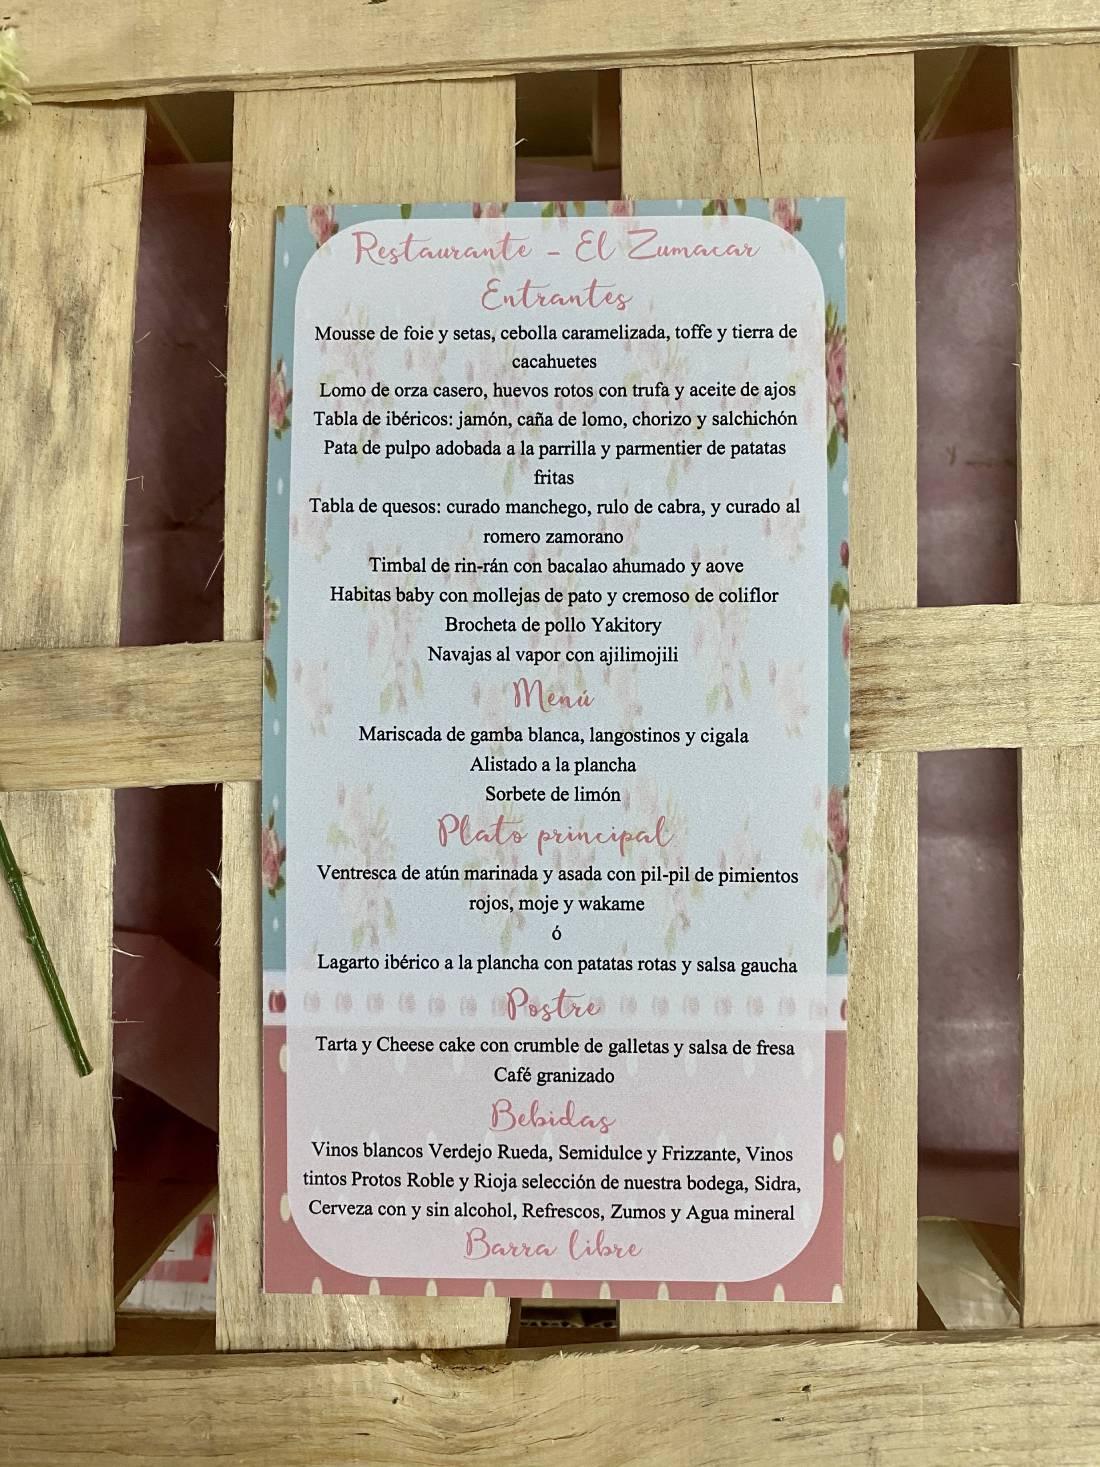 Restaurante - El Zumacar
Entrantes
Mousse de foie y setas, cebolla caramelizada, toffe y tierra de
cacahuetes
Lomo de orza casero, huevos rotos con trufa y aceite de ajos
Tabla de ibéricos: jamón, caña de lomo, chorizo y salchichón
Pata de pulpo adobada a la parrilla y parmentier de patatas
fritas
Tabla de quesos: curado manchego, rulo de cabra, y curado al
romero zamorano
Timbal de rin-rán con bacalao ahumado y aove
Habitas baby con mollejas de pato y cremoso de coliflor
Brocheta de pollo Yakitory
Navajas al vapor con ajilimojili
Menú
Mariscada de gamba blanca, langostinos y cigala
Alistado a la plancha
Sorbete de limón
Plato principal
Ventresca de atún marinada y asada con pil-pil de pimientos
rojos, moje y wakame
ó
Lagarto ibérico a la plancha con patatas rotas y salsa gaucha
Postre
Tarta y Cheese cake con crumble de galletas y salsa de fresa
Café granizado
Bebidas
Vinos blancos Verdejo Rueda, Semidulce y Frizzante, Vinos
tintos Protos Roble y Rioja selección de nuestra bodega, Sidra,
Cerveza con y sin alcohol, Refrescos, Zumos y Agua mineral
Barra libre